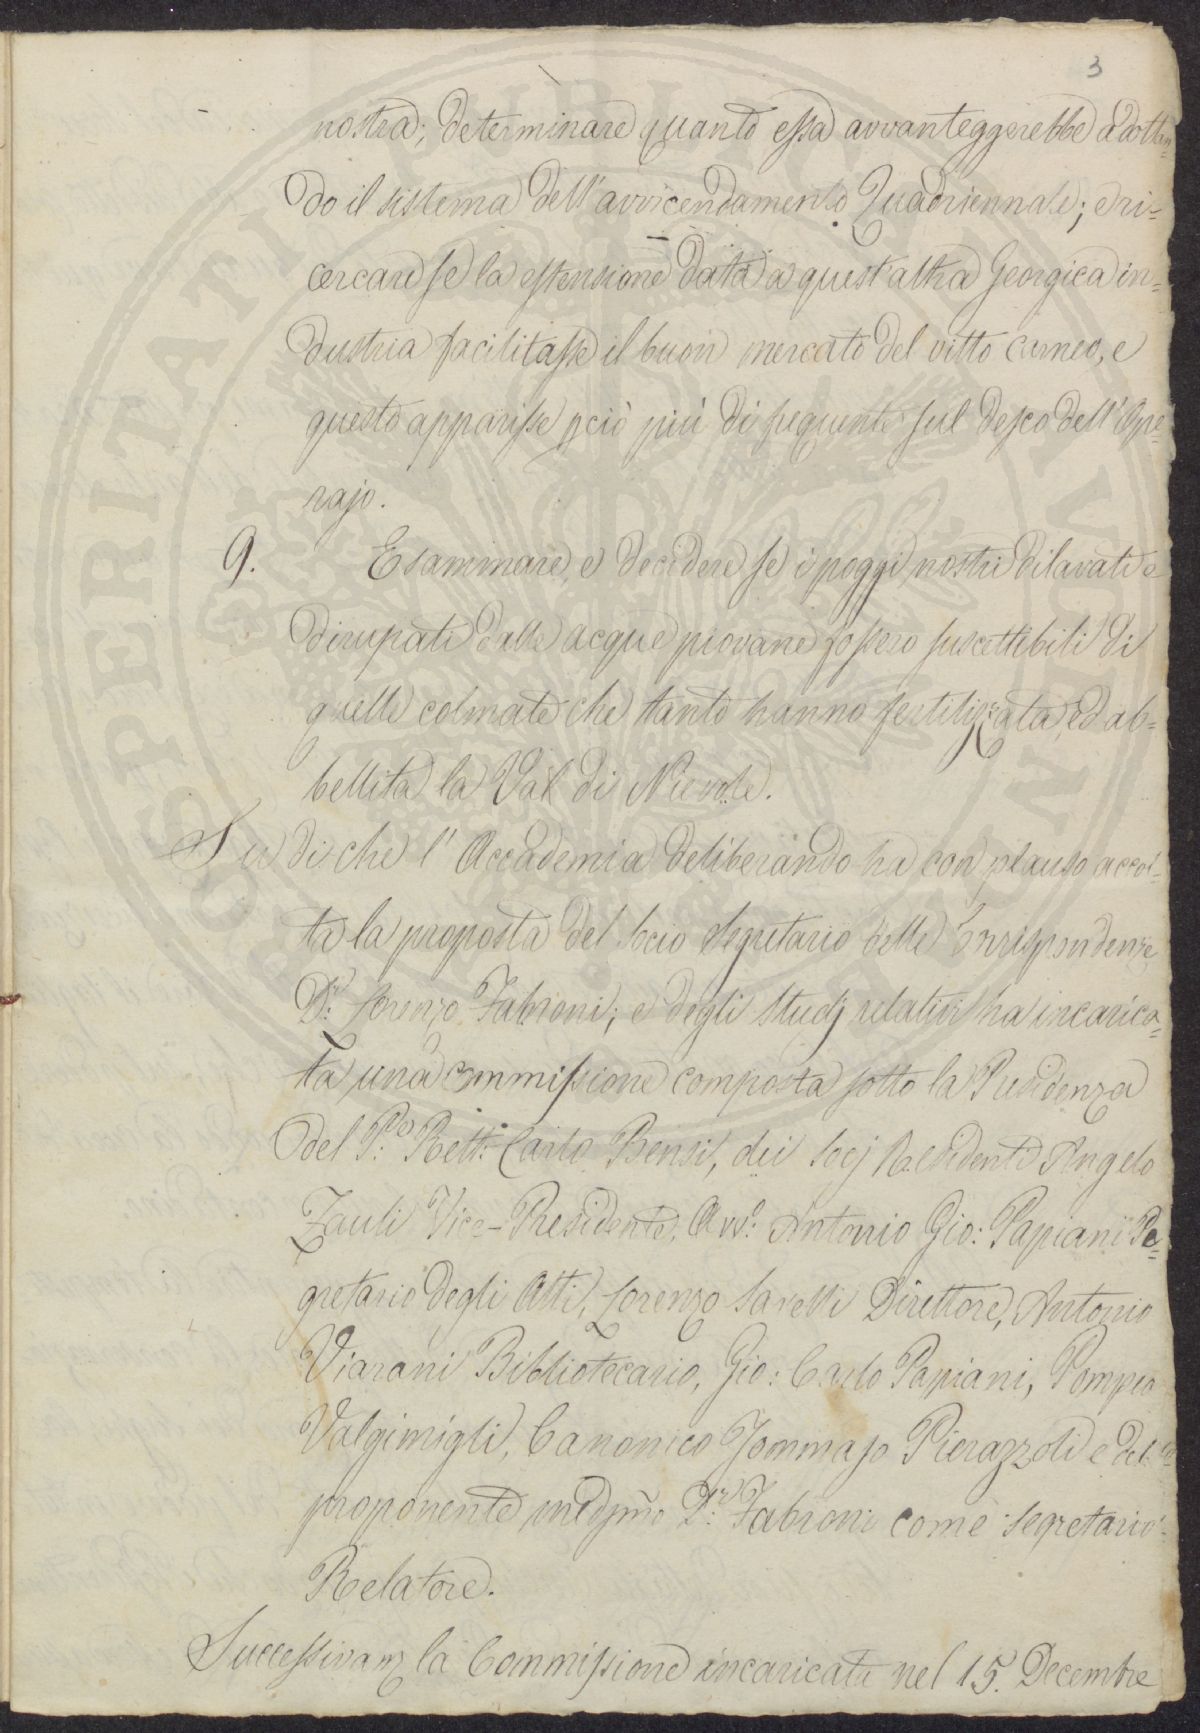 3
nostra; determinare quanto essa avvanteggerebbe adottan=
do il sistema dell'avvicendamento Quadriennale; e ri=
cercare se la estensione data a quest'altra Georgica in=
dustria facilitasse il buon mercato del vitto carneo, e
questo apparisse pciò più di frequente sul desco dell'Ope=
rajo.
9. Esaminare, e decidere se i poggi nostri dilavati e
dirupati dalle acque piovane fossero suscettibili di
quelle colmate che tanto hanno fertilizzata, ed ab=
bellita la Val di Nievole.
Su di che l'Accademia deliberando ha con plauso accol=
ta la proposta del Socio Segretario delle Corrispondenze
Dr. Lorenzo Fabroni; e degli Studj relativi ha incarica=
ta una commissione composta sotto la Presidenza
del P. Rett. Carlo Bensi, dei Socj Residenti Angelo
Zauli Vice-Presidente, Avv. Antonio Gio: Papiani Se=
gretario degli Atti, Lorenzo Savelli Direttore, Antonio
Viarani Bibliotecario, Gio: Carlo Papiani, Pompeo
Valgimigli, Canonico Tommaso Pierazzoli e del
proponente medjmo Dr. Fabroni come Segretario
Relatore.
Successivamᵉ la Commissione incaricata nel 15. Decembre
PROSPERITATI PUBLICAE